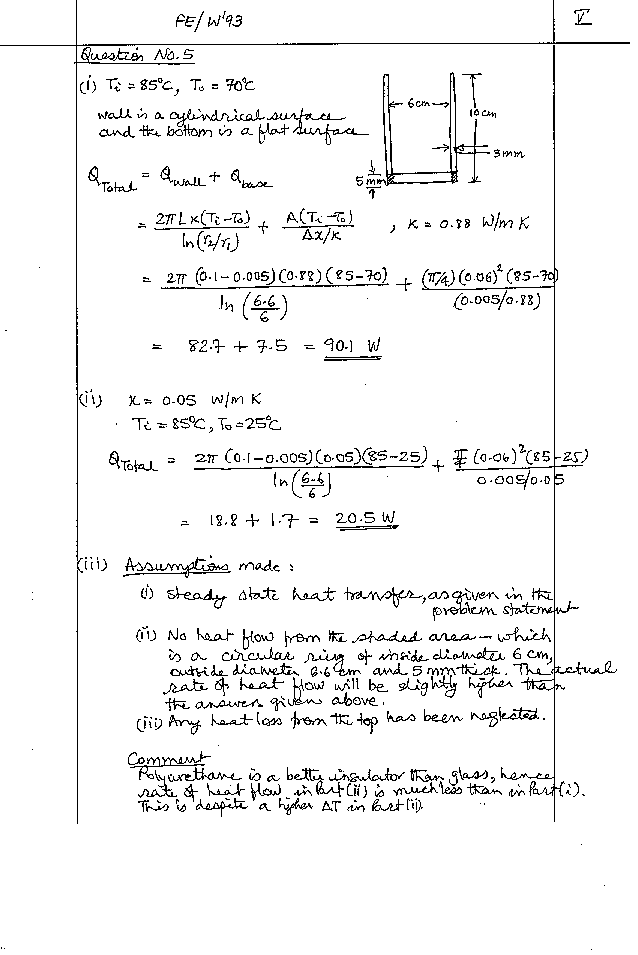 PE/W'93
V
Question No.5
(i) Ti = 85°C, To = 70°C
Wall is a cylindrical surface
and the bottom is a flat surface
6cm
10cm
3mm
5 mm
QTotal = Qwall + Qbase
= 2πLK(Ti-To)/ln(r2/r1) + A(Ti-To)/Δx/K , K = 0.88 W/m K
= 2π (0.1-0.005)(0.88)(85-70)/ln(6.6/6) + (π/4)(0.06)²(85-70)/(0.005/0.88)
= 82.7 + 7.5 = 90.1 W
(ii) K = 0.05 W/m K
Ti = 85°C, To = 25°C
QTotal = 2π (0.1-0.005)(0.05)(85-25)/ln(6.6/6) + π/4 (0.06)²(85-25)/0.005/0.05
= 18.8 + 1.7 = 20.5 W
(iii) Assumptions made :
(i) Steady state heat transfer, as given in the
problem statement
(ii) No heat flow from the shaded area - which
is a circular ring of inside diameter 6 cm,
outside diameter 6.6 cm and 5 mm thick. The actual
rate of heat flow will be slightly higher than
the answer given above.
(iii) Any heat loss from the top has been neglected.
Comment
Polyurethane is a better insulator than glass, hence
rate of heat flow in Part (ii) is much less than in Part (i).
This is despite a higher ΔT in Part (ii).